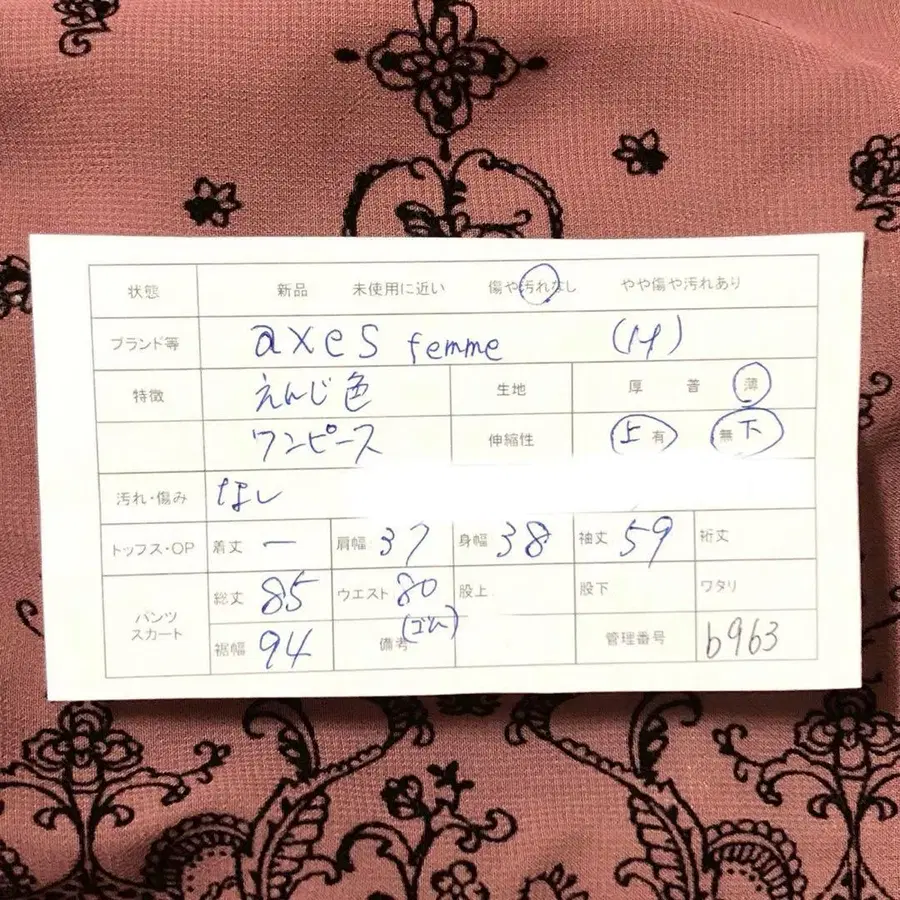 状態 新品 未使用に近い 傷や汚れなし やや傷や汚れあり
ブランド等 axes femme (M)
特徴 えんじ色 生地 厚 普 薄
ワンピース 伸縮性 上 有 無 下
汚れ・傷み なし
トップス・OP 着丈 ー 肩幅 37 身幅 38 袖丈 59 裄丈
パンツ スカート 総丈 85 ウエスト 80 股上 股下 ワタリ
(ゴム)
裾幅 94 備考 管理番号 b963